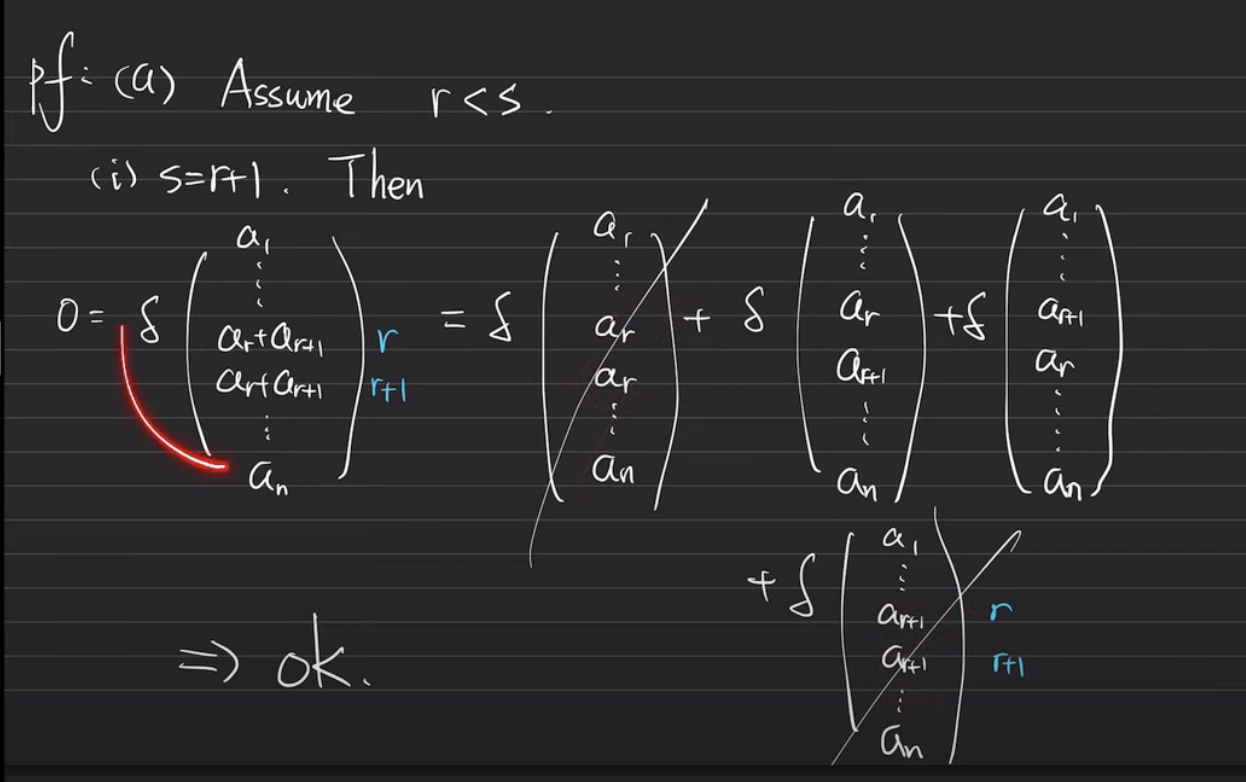 pf: (a) Assume r < s.
(i) s=r+1. Then
0 = δ ( a₁ ⋮ aᵣ+aᵣ₊₁ aᵣ+aᵣ₊₁ ⋮ aₙ ) r r+1 = δ ( a₁ ⋮ aᵣ aᵣ ⋮ aₙ ) + δ ( a₁ ⋮ aᵣ aᵣ₊₁ ⋮ aₙ ) + δ ( a₁ ⋮ aᵣ₊₁ aᵣ ⋮ aₙ )
+ δ ( a₁ ⋮ aᵣ₊₁ aᵣ₊₁ ⋮ aₙ ) r r+1
⇒ ok.